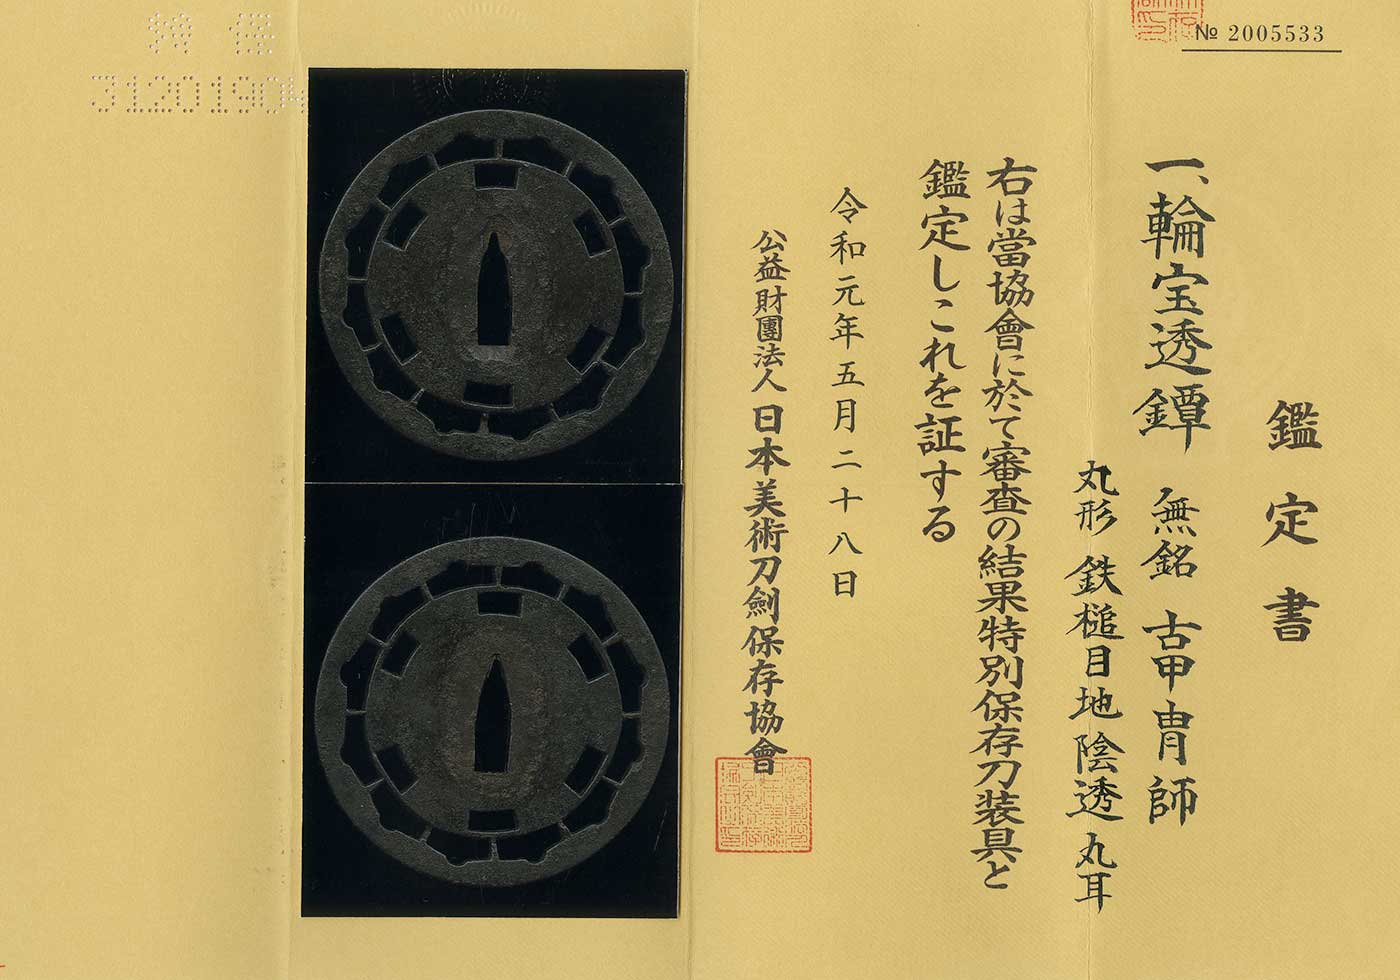 № 2005533
鑑定書
一、輪宝透鐔 無銘 古甲冑師
丸形 鉄槌目地 陰透 丸耳
右は當協會に於て審査の結果特別保存刀装具と
鑑定しこれを証する
令和元年五月二十八日
公益財團法人 日本美術刀劍保存協會
特保
31201904